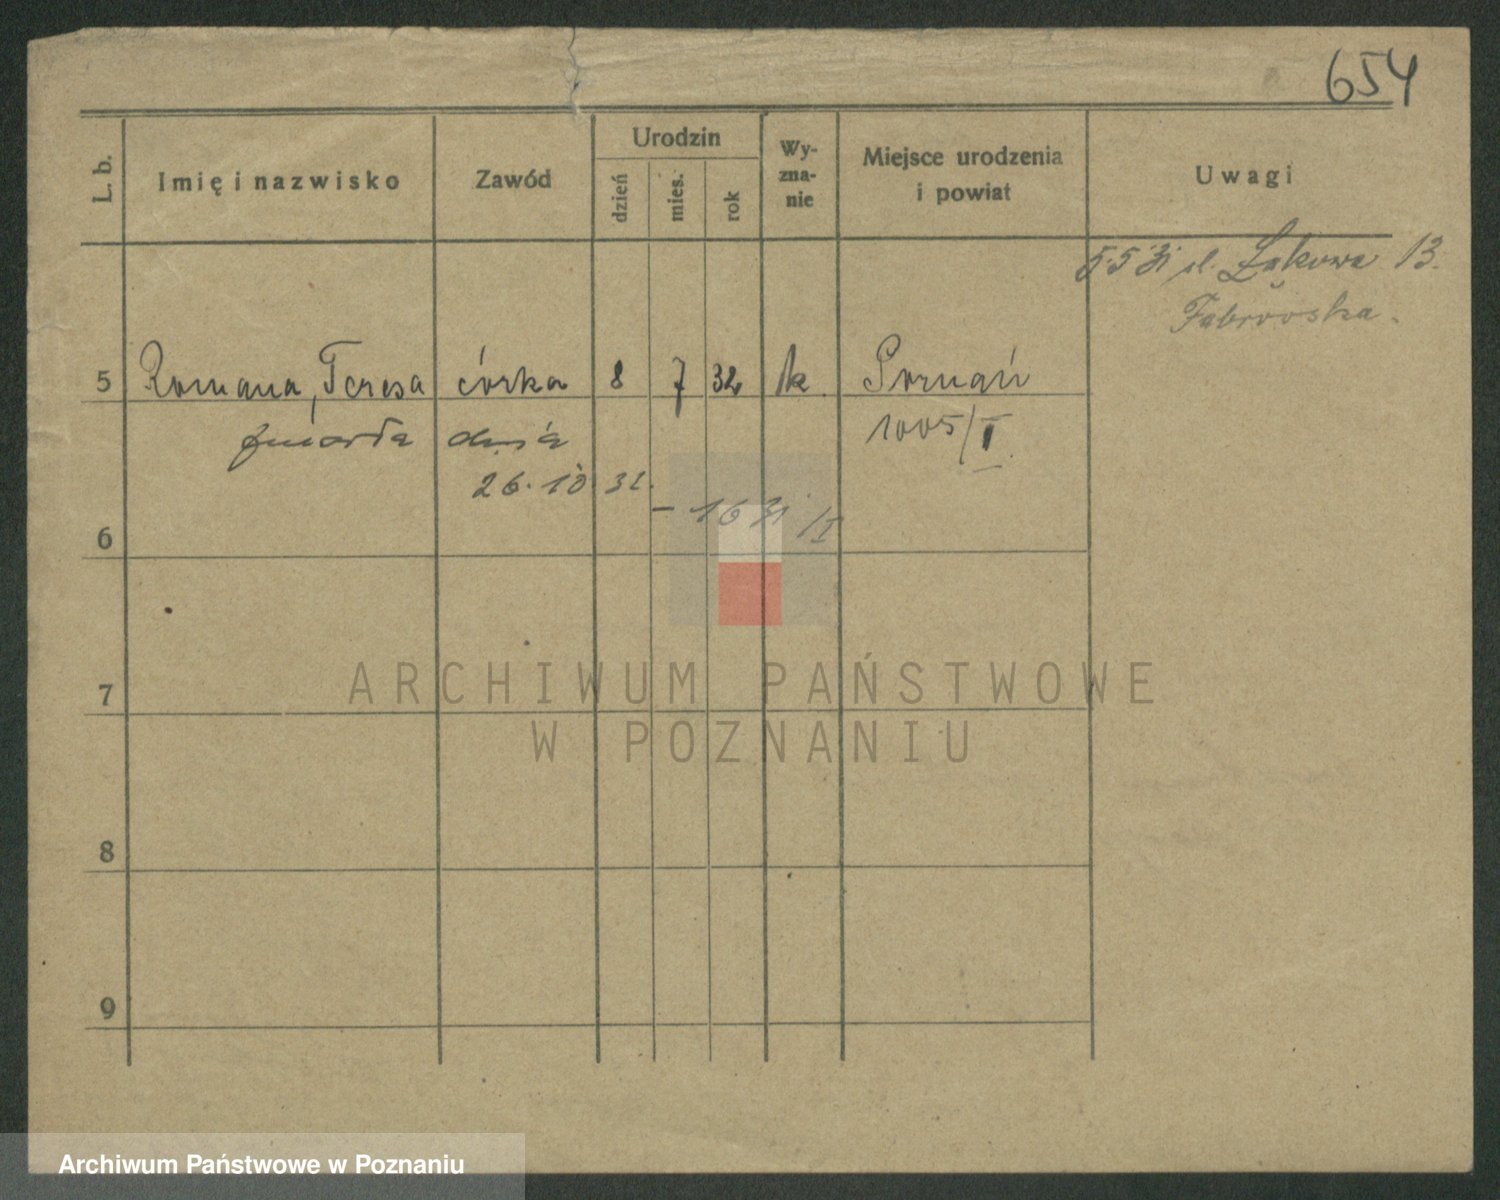 654
L. b.
Imię i nazwisko
Zawód
Urodzin
dzień
mies.
rok
Wy-
zna-
nie
Miejsce urodzenia
i powiat
Uwagi
ul. Łąkowa 13.
5 Romana, Teresa córka 8 7 32 rk Poznań
zmarła dnia 1005/I
26.10 32.
6
7
8
9
ARCHIWUM PAŃSTWOWE
W POZNANIU
Archiwum Państwowe w Poznaniu